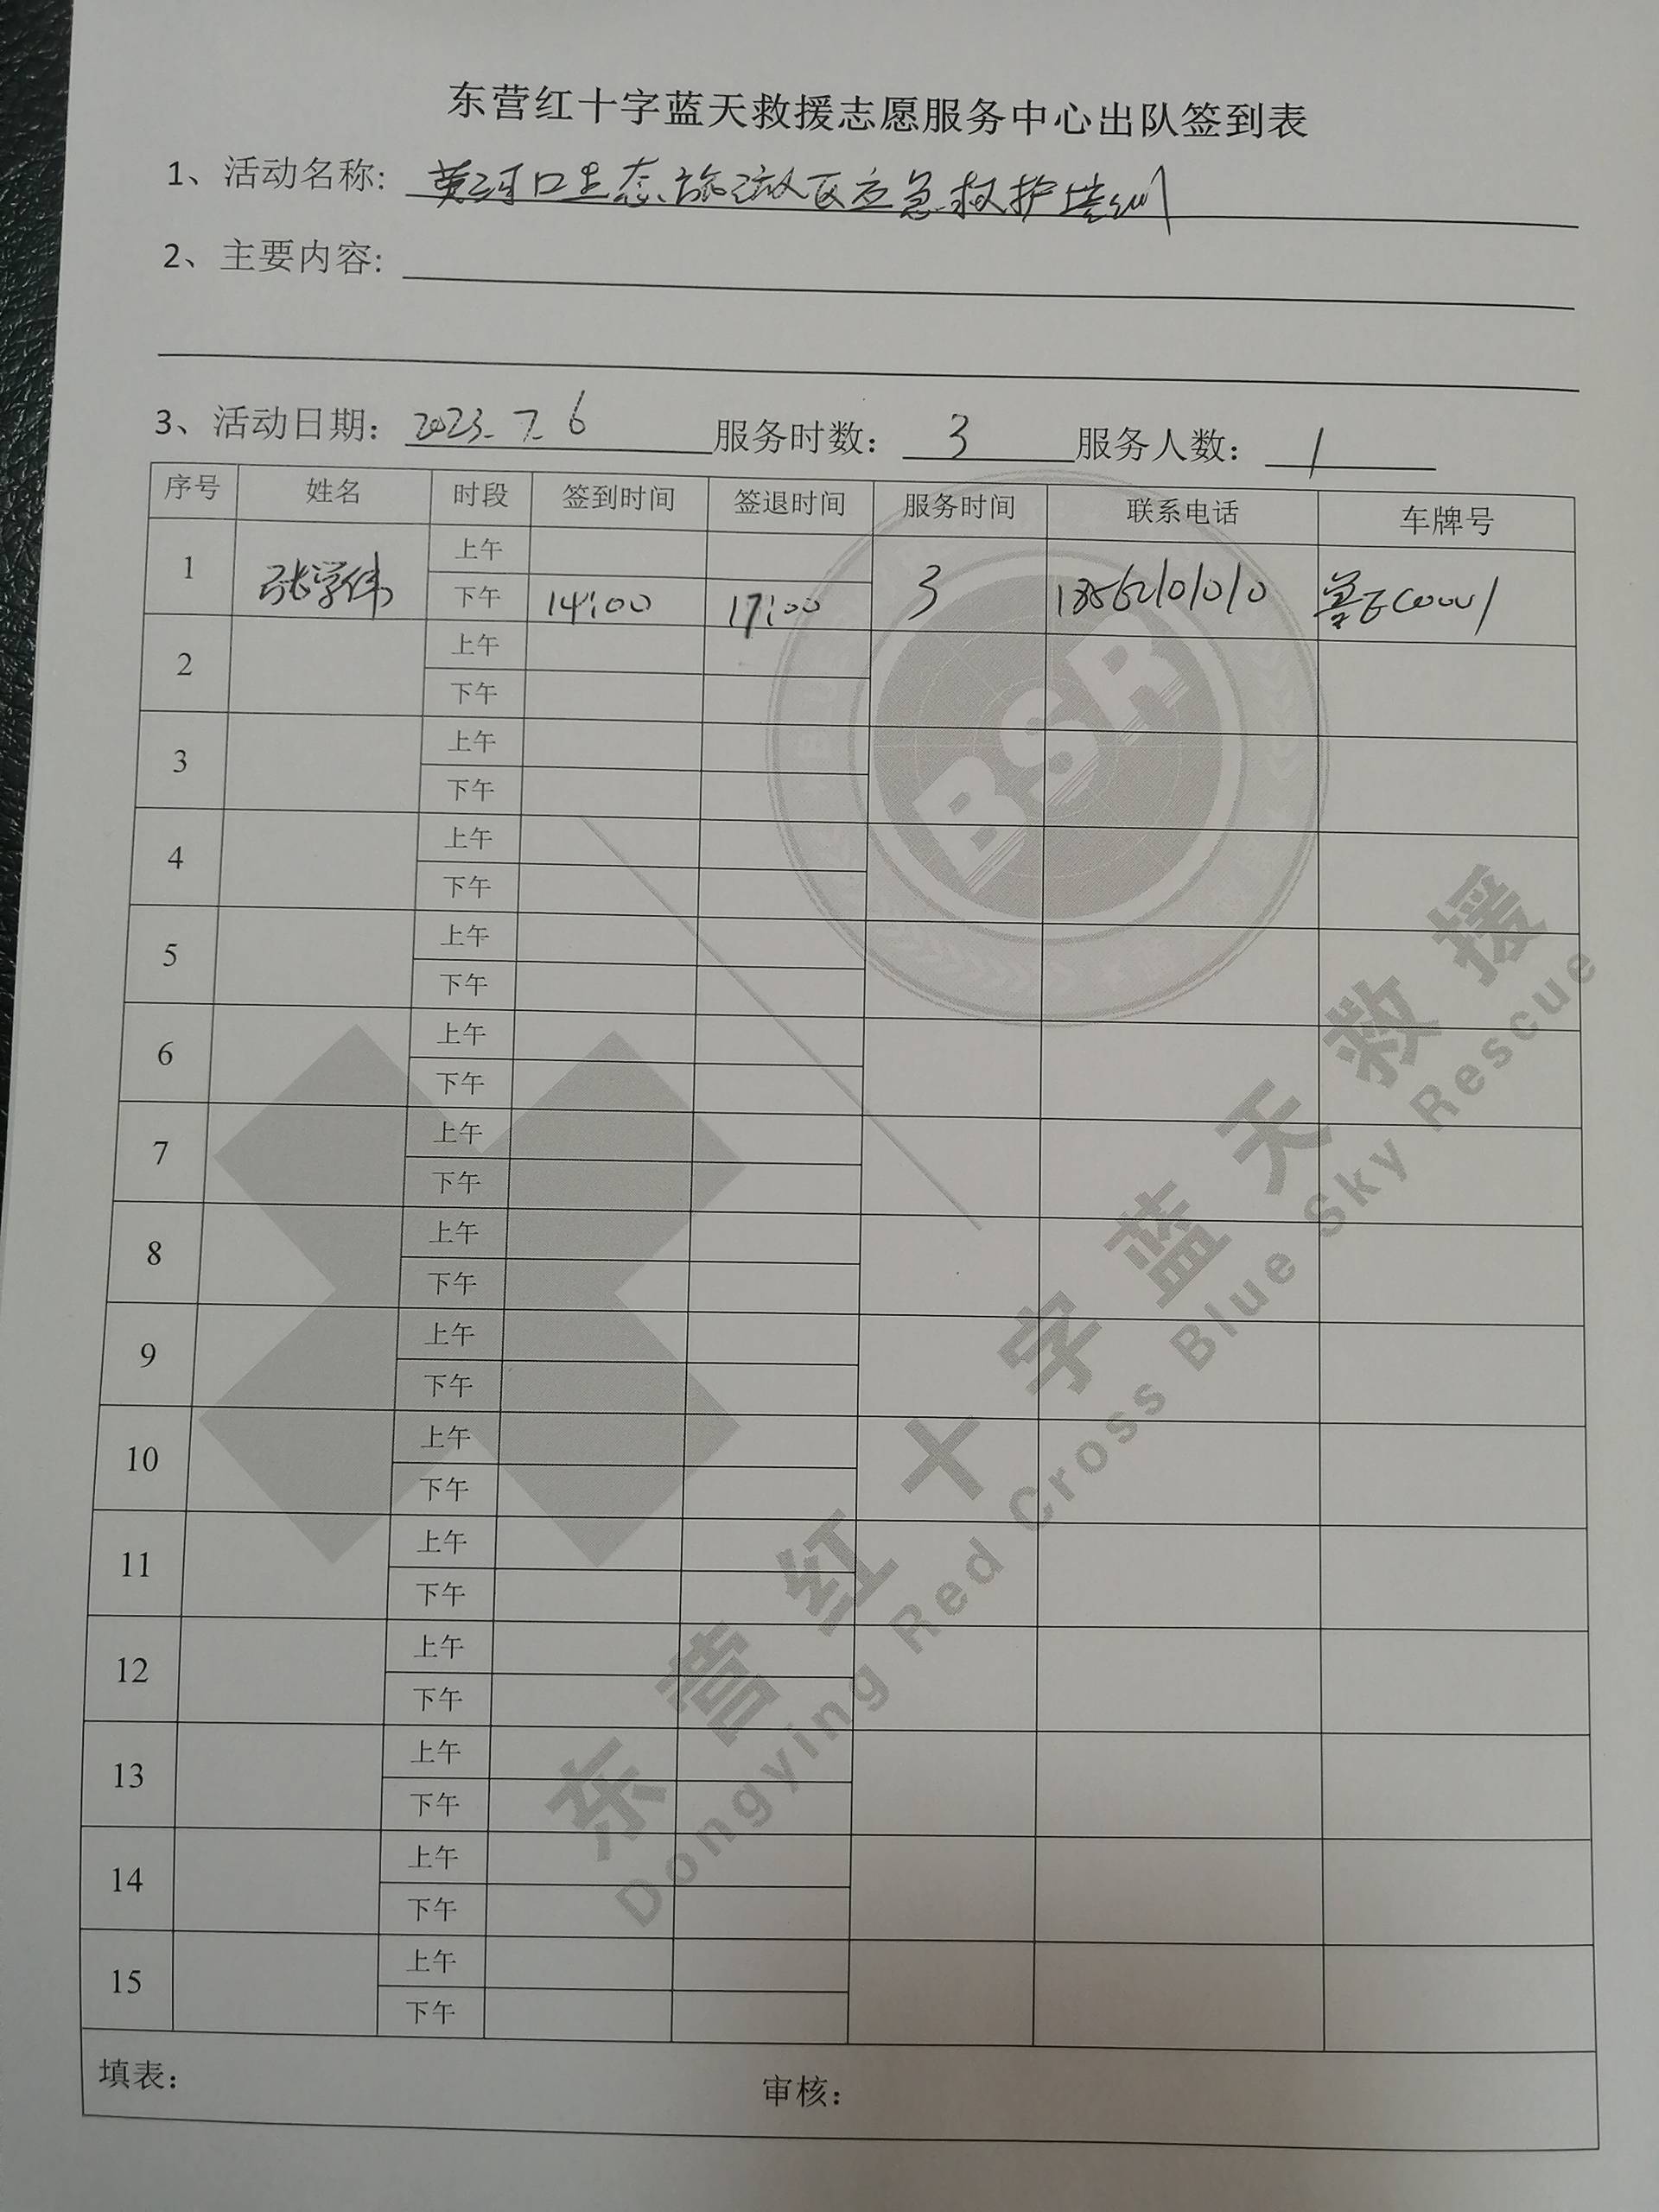 东营红十字蓝天救援志愿服务中心出队签到表
1、活动名称: 黄河口生态旅游区应急救护培训
2、主要内容:
3、活动日期: 2023.7.6 服务时数: 3 服务人数: 1
序号 姓名 时段 签到时间 签退时间 服务时间 联系电话 车牌号
1 张学伟 上午
下午 14:00 17:00 3 13562101010
2 上午
下午
3 上午
下午
4 上午
下午
5 上午
下午
6 上午
下午
7 上午
下午
8 上午
下午
9 上午
下午
10 上午
下午
11 上午
下午
12 上午
下午
13 上午
下午
14 上午
下午
15 上午
下午
填表: 审核:
BSR
东营红十字蓝天救援
Dongying Red Cross Blue Sky Rescue